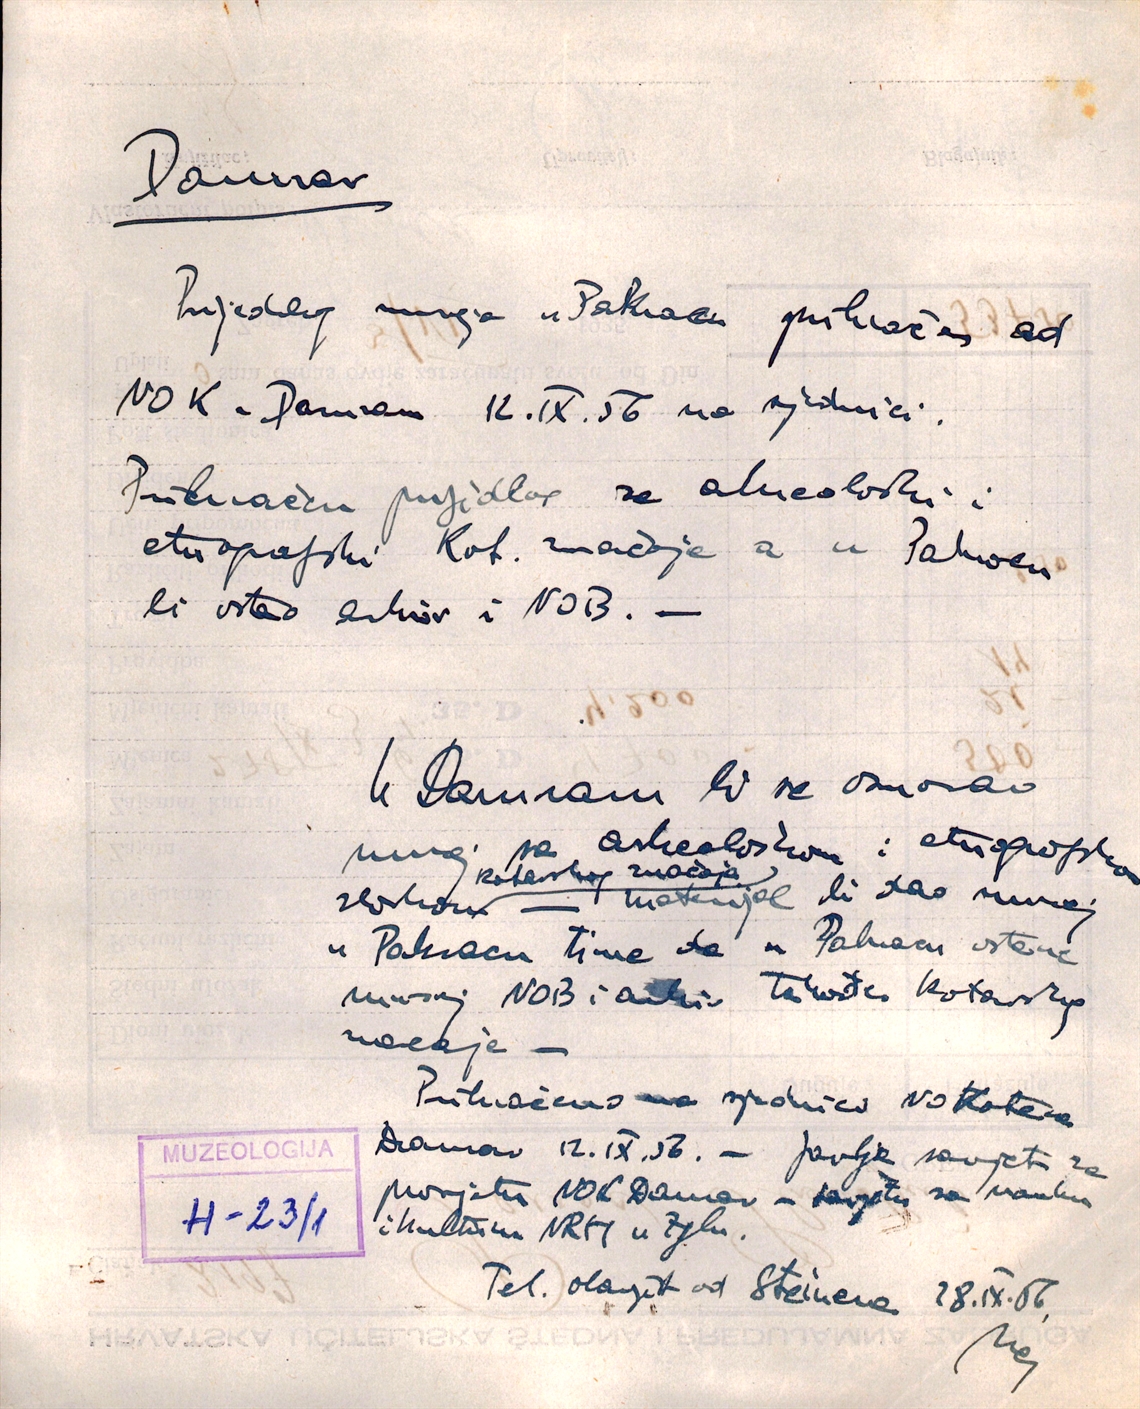 Daruvar
Prijedlog muzeja u Pakracu prihvaćen od
NOK u Daruvaru 12.IX.56 na sjednici.
Prihvaćen prijedlog za arheološki i
etnografski Kot. značaja a u Pakracu
bi ostao arhiv i NOB. —
U Daruvaru bi se osnovao
muzej sa arheološkom i etnografskom
kotarskog značaja
zbirkom — materijal bi dao muzej
u Pakracu time da u Pakracu ostane
muzej NOB i arhiv također kotarskog
značaja —
Prihvaćeno na sjednici NO Kotara
Daruvar 12.IX.56. — Javlja savjet za
prosvjetu NOK Daruvar – savjetu za nauku
i kulturu NRH u Zgbu.
Tel. obavijest od Steinera 28.IX.56.
MUZEOLOGIJA
H-23/1
HRVATSKA UČITELJSKA ŠTEDNA I PREDUJAMNA ZADRUGA